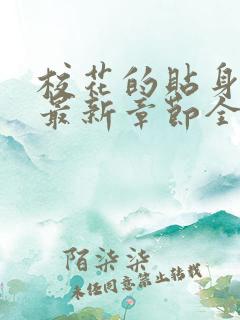 校花的贴身
最新章节全
陌柒柒
未经同意禁止转载